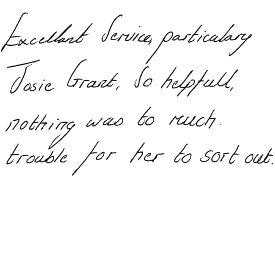 Excellent Service, particulary
Josie Grant, So helpfull,
nothing was to much.
trouble for her to sort out.